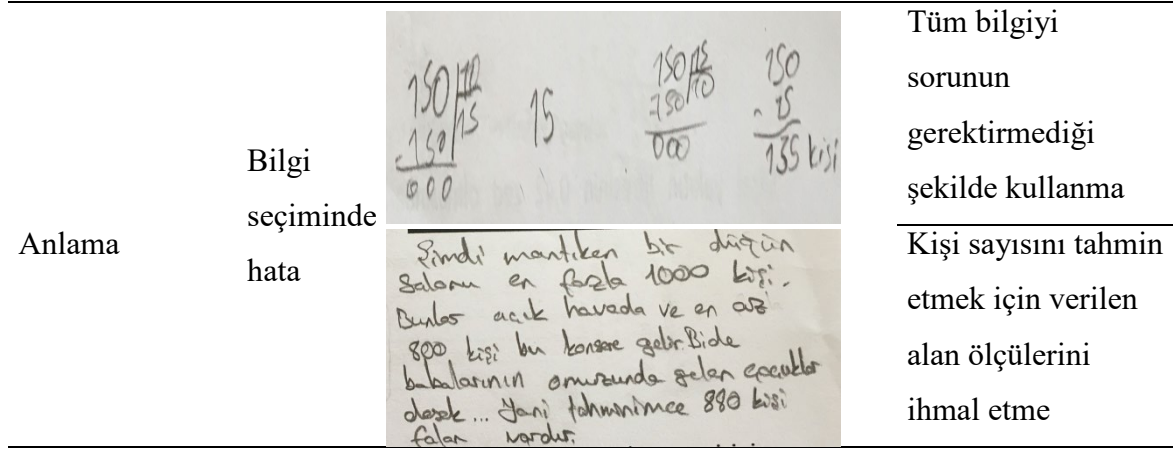 Anlama
Bilgi
seçiminde
hata
150 10
150 15
000
15
150 15
-150 10
000
150
- 15
135 kişi
Tüm bilgiyi
sorunun
gerektirmediği
şekilde kullanma
Şimdi mantıken bir düğün
salonu en fazla 1000 kişi.
Bunlar açık havada ve en az
800 kişi bu konsere gelir. Bide
babalarının omuzunda gelen çocuklar
desek... Yani tahminimce 880 kişi
falan vardır.
Kişi sayısını tahmin
etmek için verilen
alan ölçülerini
ihmal etme